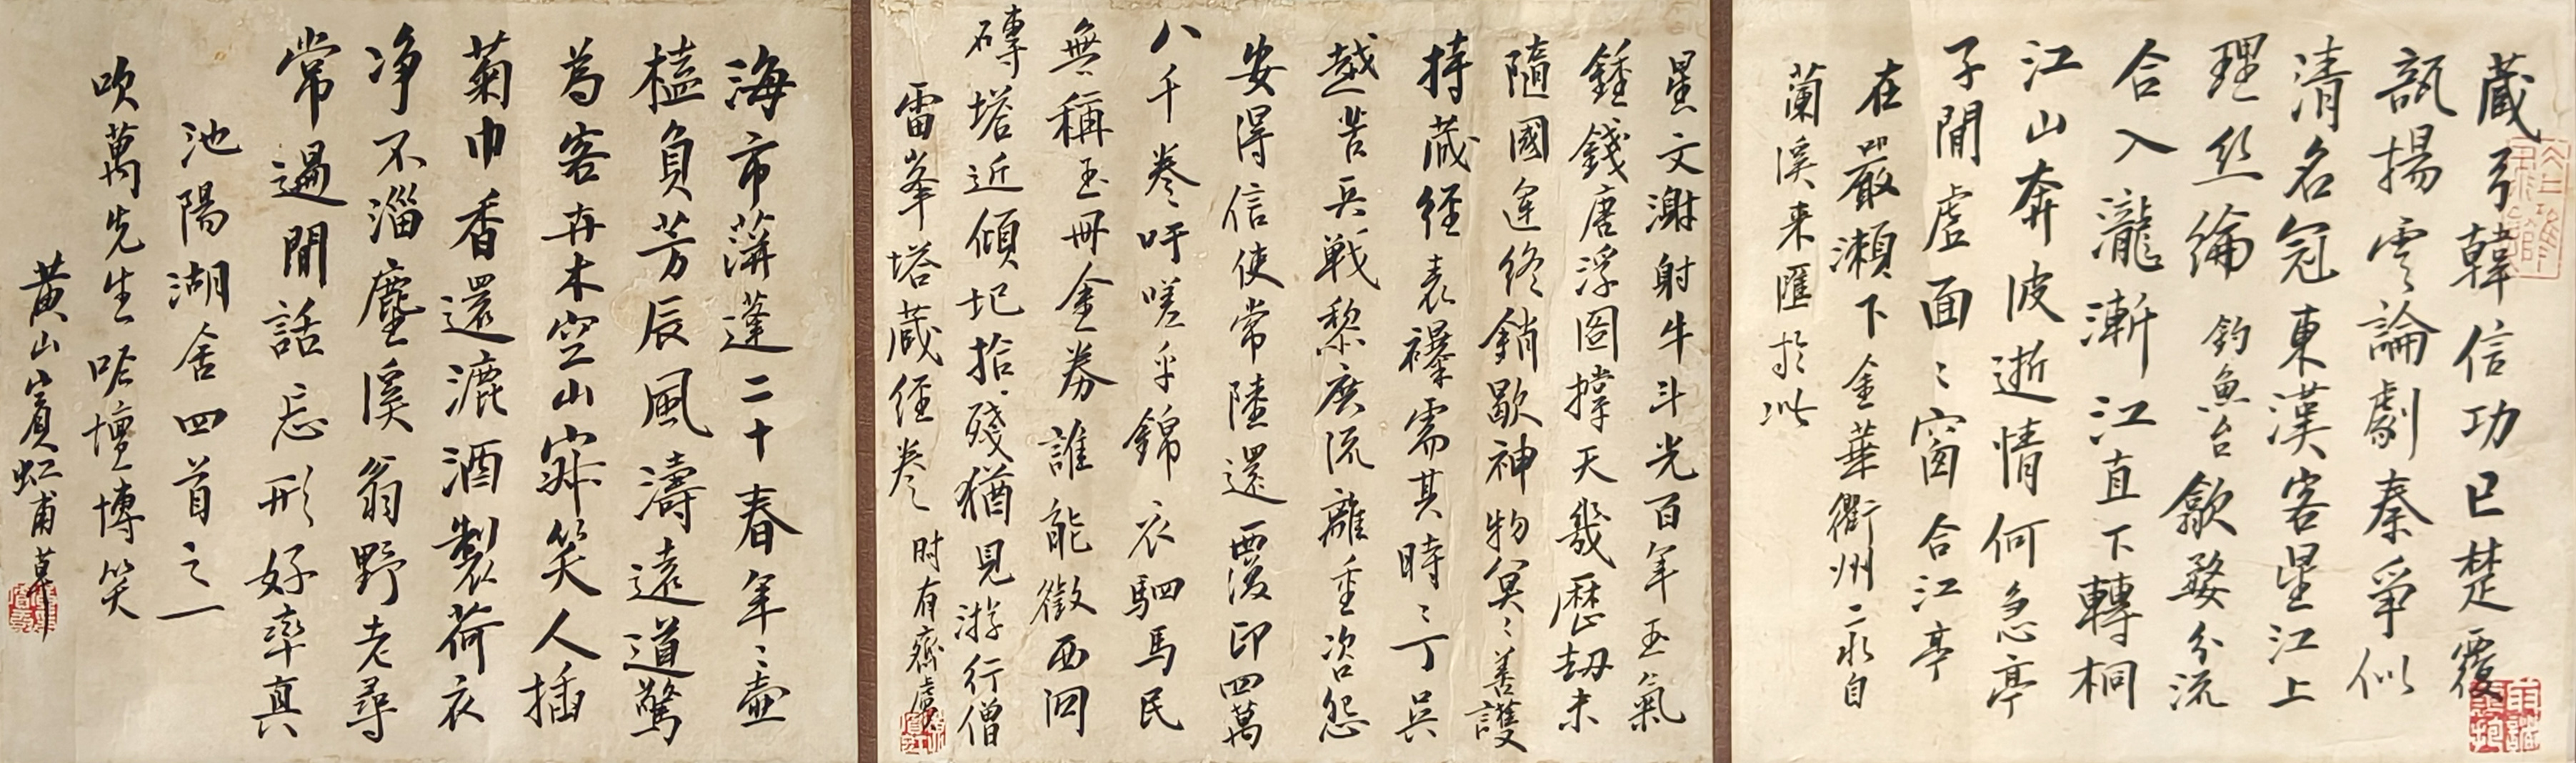 藏弓韓信功已楚覆
瓿揚雲論劇秦爭似
清名冠東漢客星江上
理絲綸 釣魚台 歙婺分流
合入瀧漸江直下轉桐
江山奔波逝情何急亭
子間虛面〻窗合江亭
在嚴瀨下金華衢州二水自
蘭溪来匯於此
星文澍射牛斗光百年玉氣
鍾錢唐浮圖撑天幾歷劫未
隨國運終銷歇神物冥〻善護
持藏經表襮需其時〻丁吳
越苦兵戰黎庶流離重咨怨
安得信使常陸還覆印四萬
八千卷吁嗟乎錦衣駟馬民
無稱玉冊金券誰能徵西洄
磚塔近傾圮拾殘猶見游行僧
雷峯塔藏經卷 時有齋虞
海市蓱蓬二十春年〻壺
榼負芳辰風濤遠道驚
為客卉木空山寂笑人插
菊巾香還漉酒製荷衣
净不淄塵溪翁野老尋
常過閒話忘形好率真
池陽湖舍四首之一
吹萬先生吟壇博笑
黄山賓虹甫草